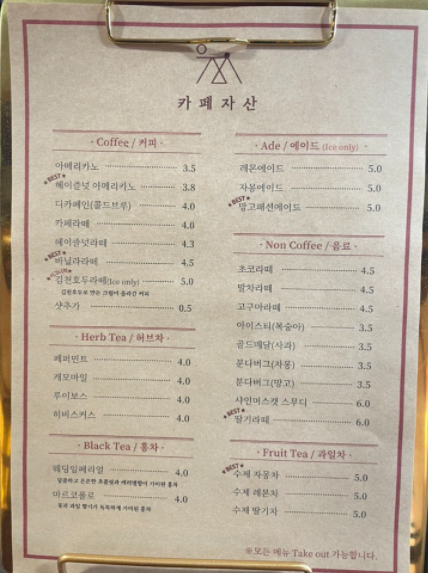 카페자산
· Coffee / 커피 ·
아메리카노 3.5
★BEST★
헤이즐넛 아메리카노 3.8
디카페인(콜드브루) 4.0
카페라떼 4.0
헤이즐넛라떼 4.3
★BEST★
바닐라라떼 4.5
김천호두라떼(Ice only) 5.0
김천호두로 만든 크림이 올라간 커피
샷추가 0.5
· Herb Tea / 허브차 ·
페퍼민트 4.0
캐모마일 4.0
루이보스 4.0
히비스커스 4.0
· Black Tea / 홍차 ·
웨딩임페리얼 4.0
달콤하고 은은한 초콜릿과 캐러멜향이 가미된 홍차
마르코폴로 4.0
꽃과 과일 향기가 독특하게 가미된 홍차
· Ade / 에이드 (Ice only) ·
레몬에이드 5.0
자몽에이드 5.0
★BEST★
망고패션에이드 5.0
· Non Coffee / 음료 ·
초코라떼 4.5
말차라떼 4.5
고구마라떼 4.5
아이스티(복숭아) 3.5
골드메달(사과) 3.5
분다버그(자몽) 3.5
분다버그(망고) 3.5
샤인머스캣 스무디 6.0
★BEST★
딸기라떼 6.0
· Fruit Tea / 과일차 ·
★BEST★
수제 자몽차 5.0
수제 레몬차 5.0
수제 딸기차 5.0
※모든 메뉴 Take out 가능합니다.